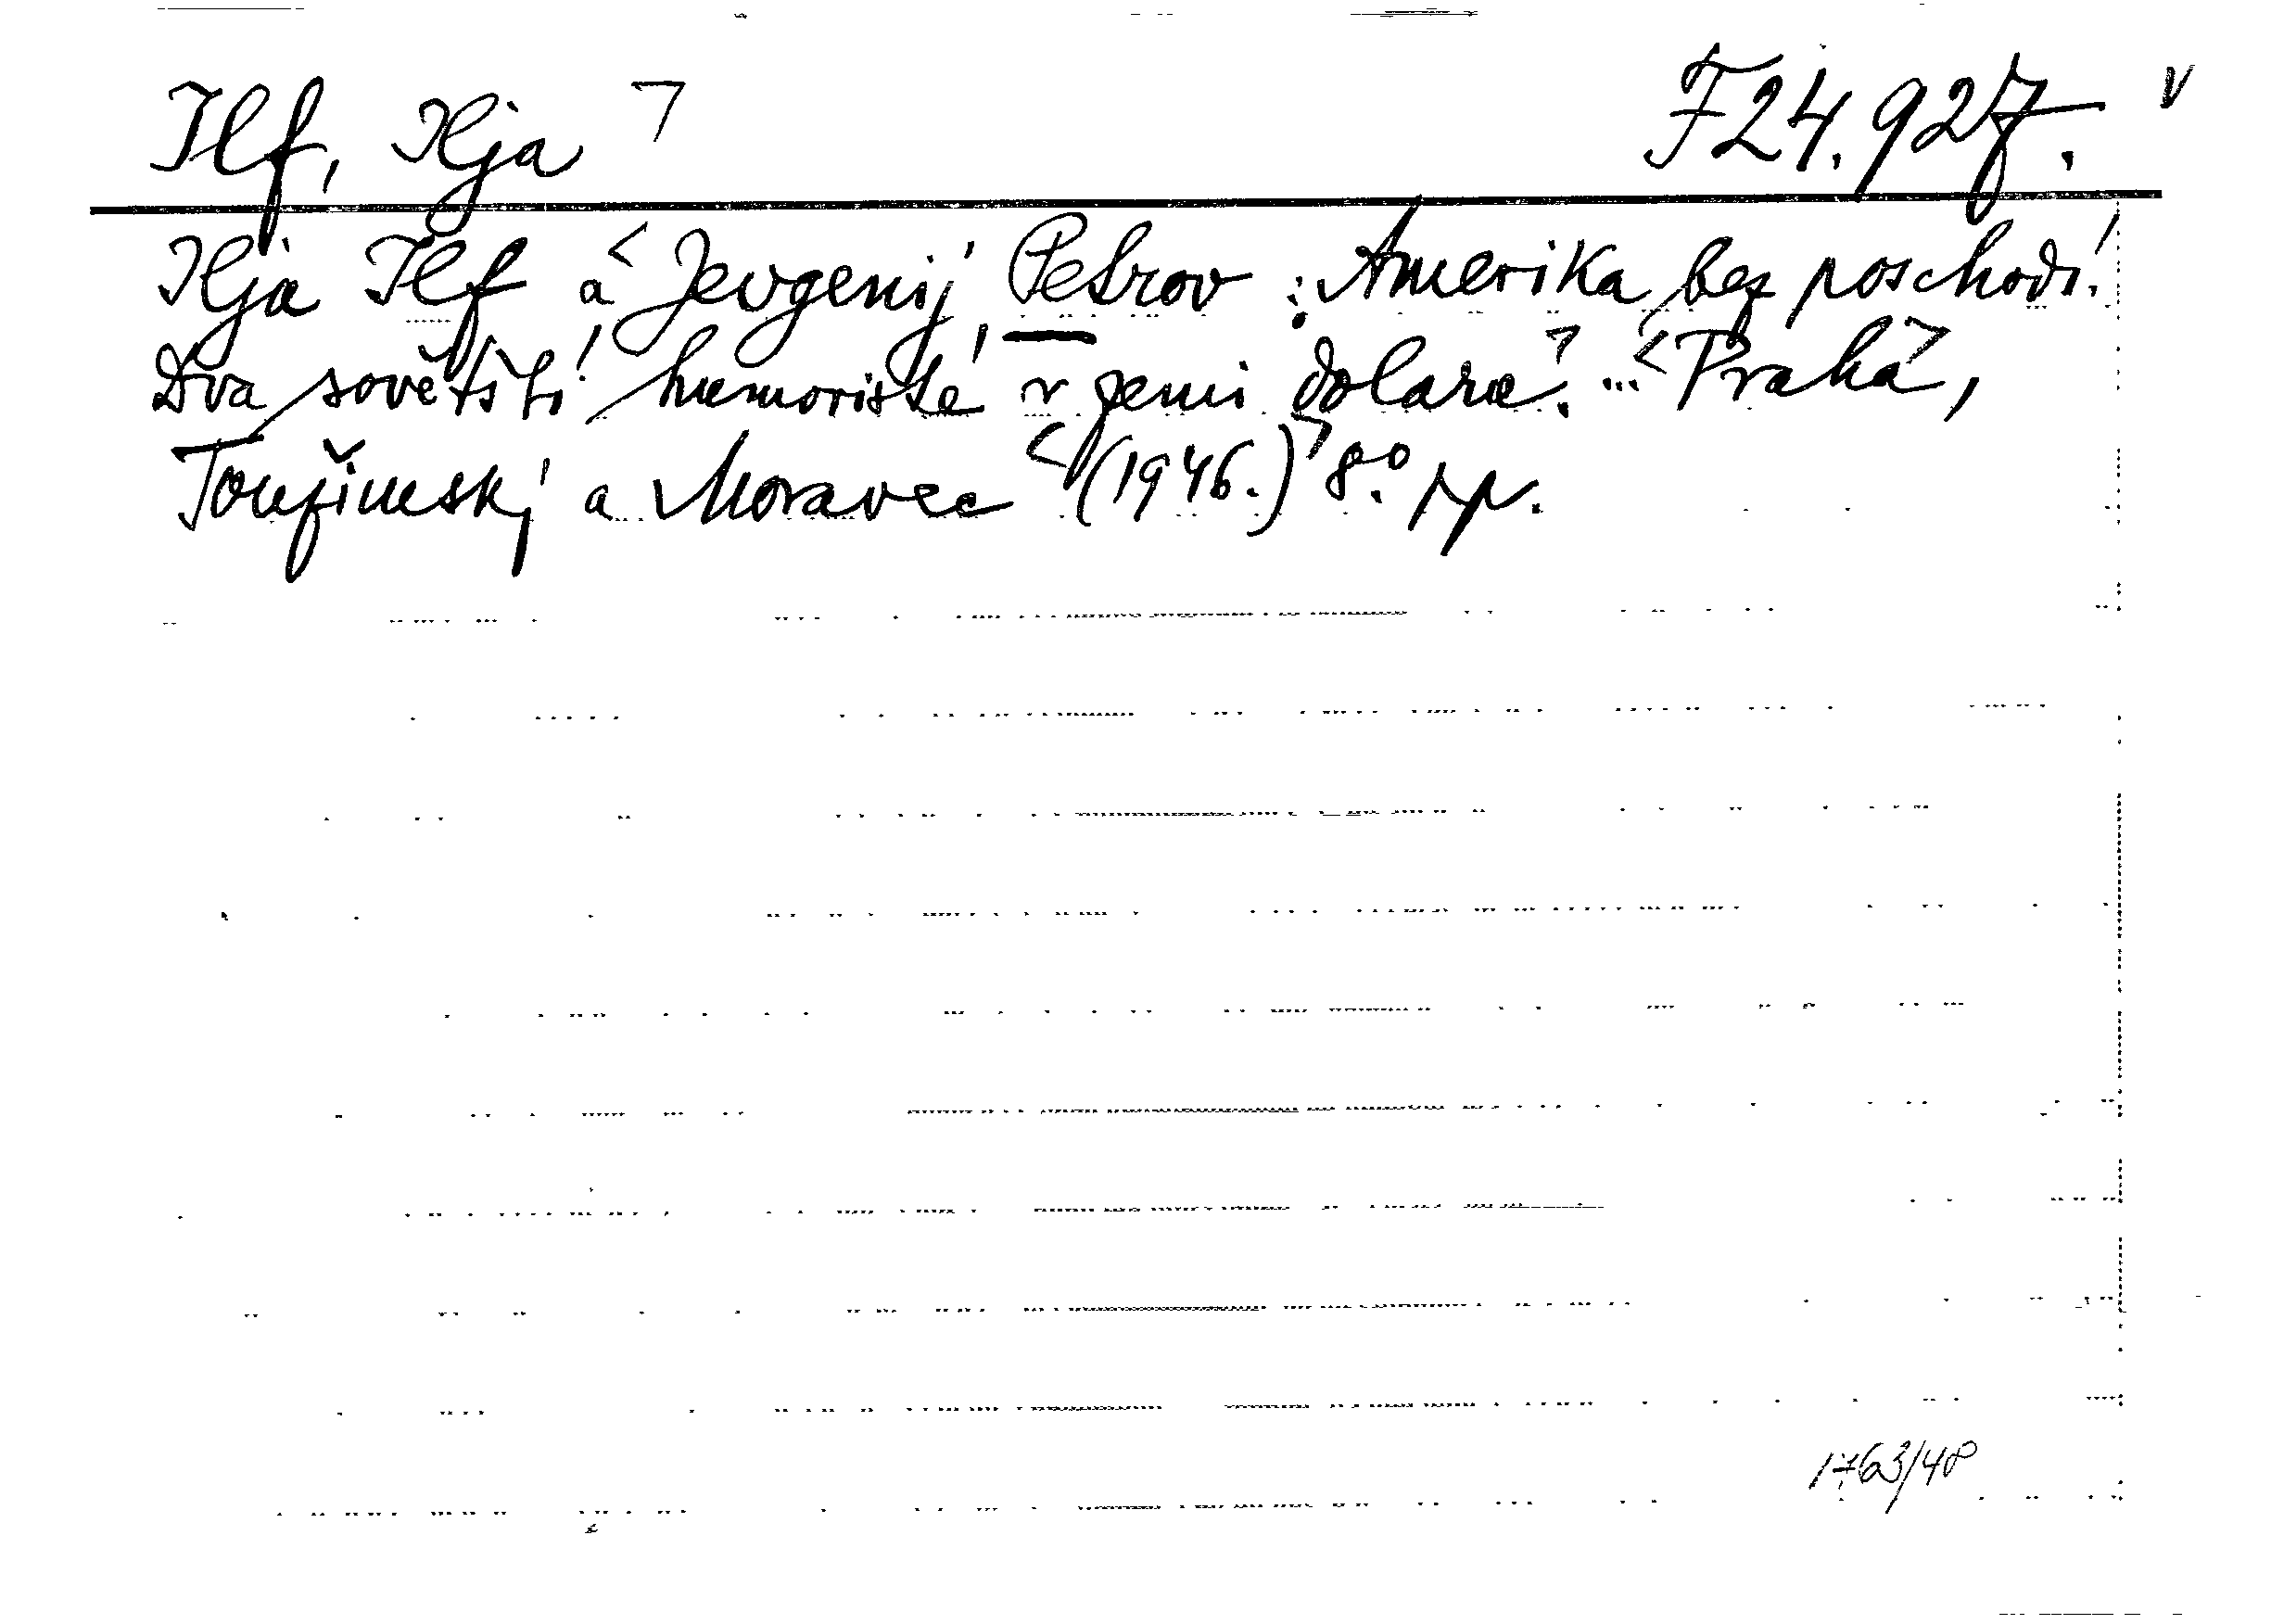 Ilf, Ilja ꓶ F 24.927. v
Ilja Ilf a < Jevgenij Petrov : Amerika bez poschodí.
Dva sovětští humoristé v zemi dolaru. > ... < Praha >,
Toužimský a Moravec < (1946.) > 8.° pp.
1763/48